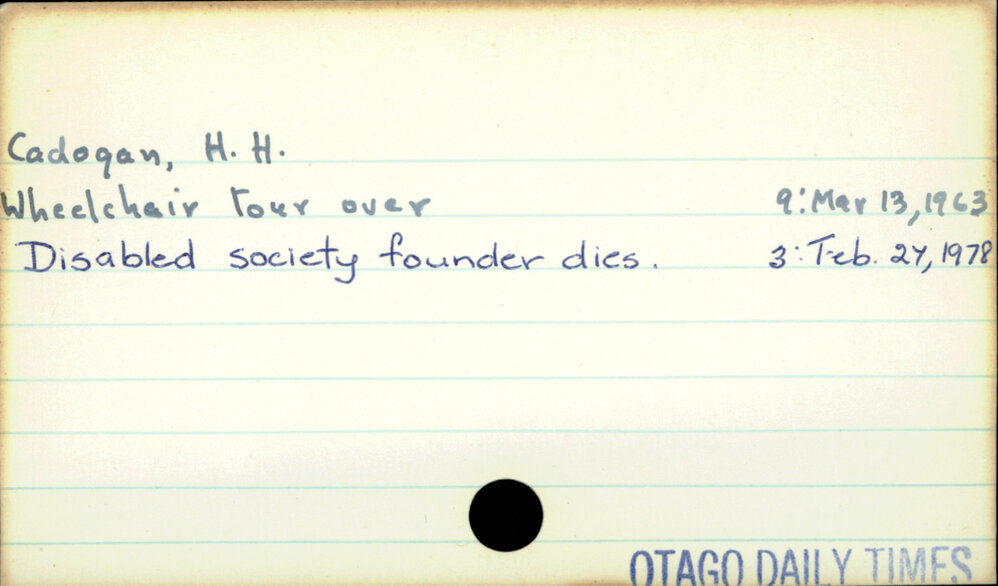 Cadogan, H. H.
Wheelchair tour over 9: Mar 13, 1963
Disabled society founder dies. 3: Feb. 24, 1978
OTAGO DAILY TIMES